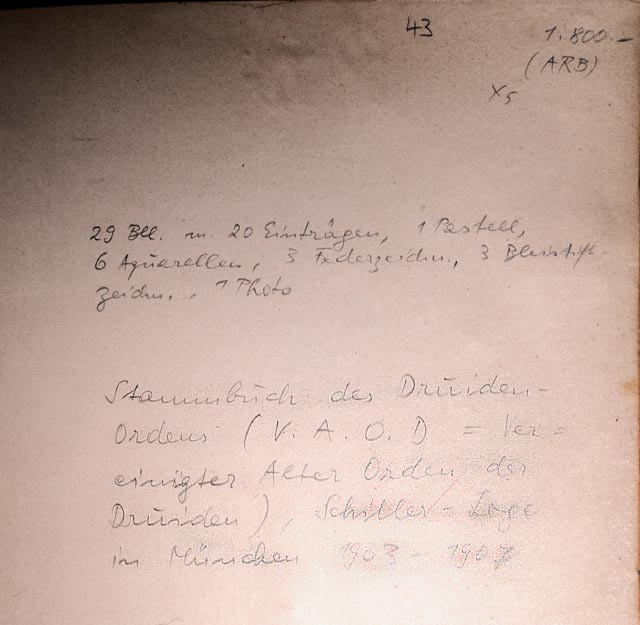 43
1.800.-
(ARB)
X5
29 Bll. m. 20 Einträgen, 1 Pastell,
6 Aquarellen, 3 Federzeichn., 3 Bleistift-
zeichn., 1 Photo
Stammbuch des Druiden-
Ordens (V. A. O. D = Ver-
einigter Alter Orden der
Druiden), Schiller-Loge
in München 1903 - 1907